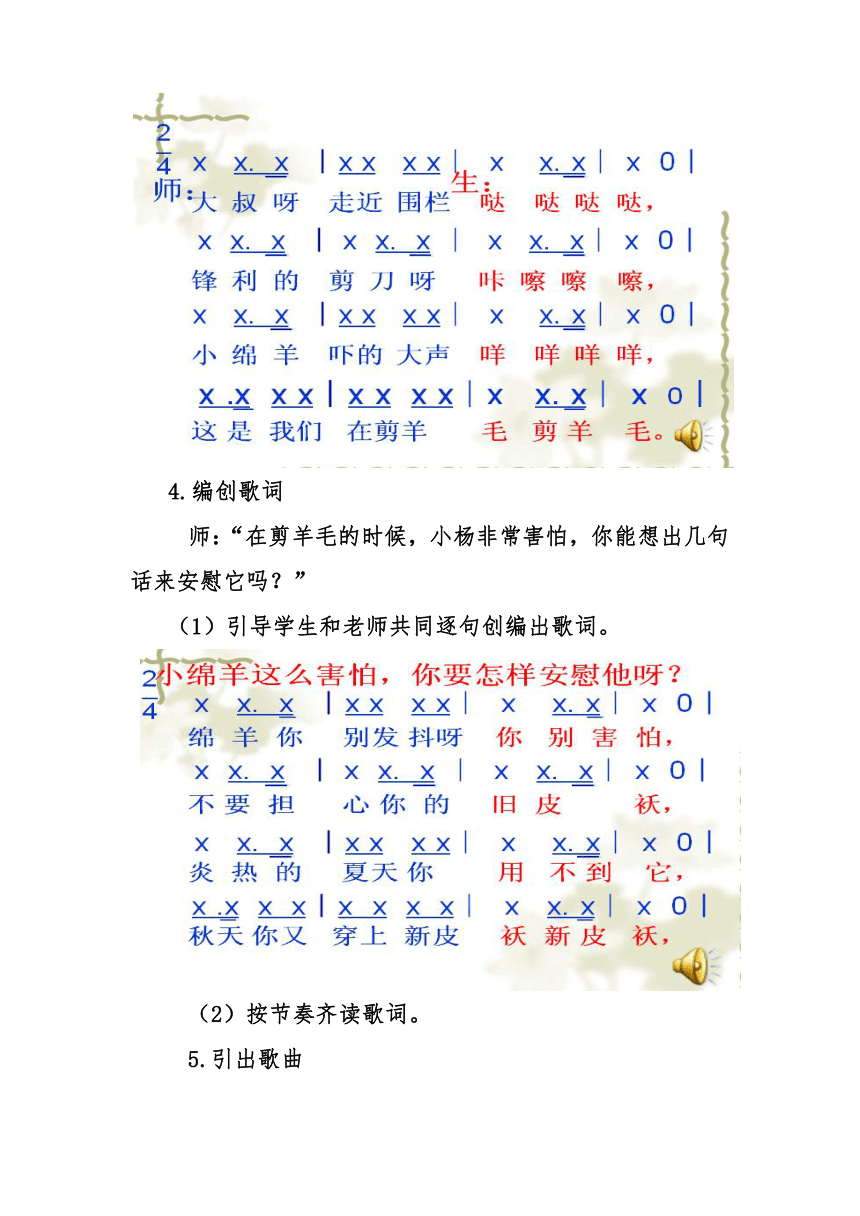 2
4 x x. x | x x x x | x x. x | x 0 |
师:大 叔 呀 走近 围栏 生:哒 哒 哒 哒，
x x. x | x x. x | x x. x | x 0 |
锋 利 的 剪 刀 呀 咔 嚓 嚓 嚓，
x x. x | x x x x | x x. x | x 0 |
小 绵 羊 吓的 大声 咩 咩 咩 咩，
x .x x x | x x x x | x x. x | x 0 |
这 是 我们 在剪羊 毛 剪 羊 毛。
4.编创歌词
师:“在剪羊毛的时候，小杨非常害怕，你能想出几句
话来安慰它吗？”
（1）引导学生和老师共同逐句创编出歌词。
小绵羊这么害怕，你要怎样安慰他呀？
2
4 x x. x | x x x x | x x. x | x 0 |
绵 羊 你 别发 抖呀 你 别 害 怕，
x x. x | x x. x | x x. x | x 0 |
不 要 担 心 你 的 旧 皮 袄，
x x. x | x x x x | x x. x | x 0 |
炎 热 的 夏天 你 用 不 到 它，
x .x x x | x x x x | x x. x | x 0 |
秋天 你又 穿上 新皮 袄 新 皮 袄，
（2）按节奏齐读歌词。
5.引出歌曲